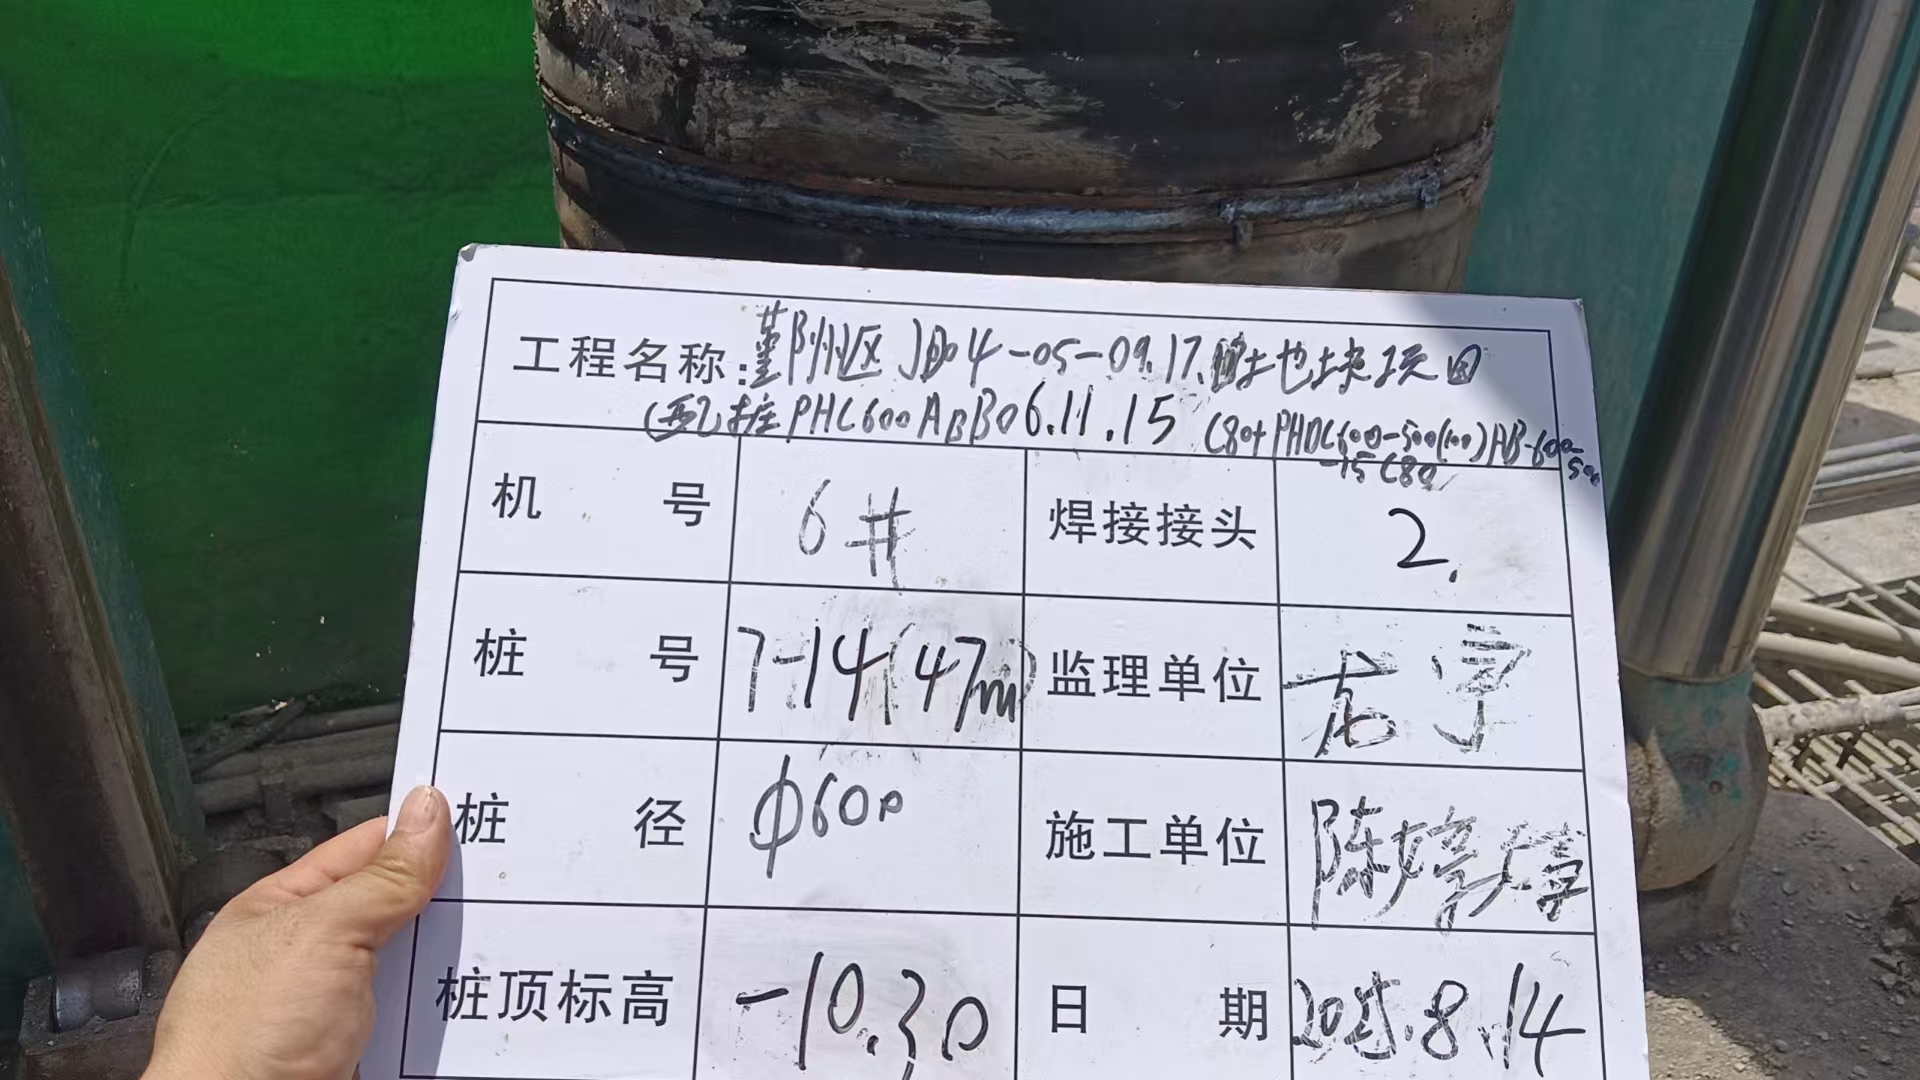 工程名称:鄞州区JB04-05-09.17.地块项目
(配桩PHC600AB B06.11.15 C80+PHDC600-500(100)AB-600-500
-15 C80
机号 6# 焊接接头 2.
桩号 7-14(47m) 监理单位
桩径 φ600 施工单位 陈婷婷
桩顶标高 -10.30 日期 2025.8.14